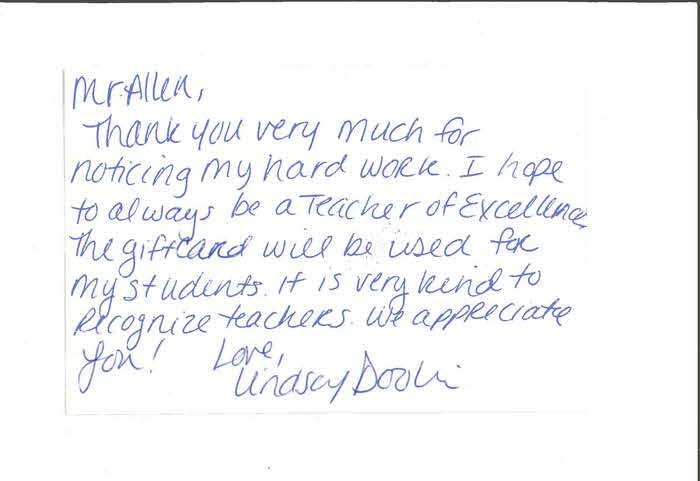 Mr. Allen,
Thank you very much for
noticing my hard work. I hope
to always be a Teacher of Excellence.
The giftcard will be used for
my students. It is very kind to
recognize teachers. We appreciate
you! Love,
Lindsay